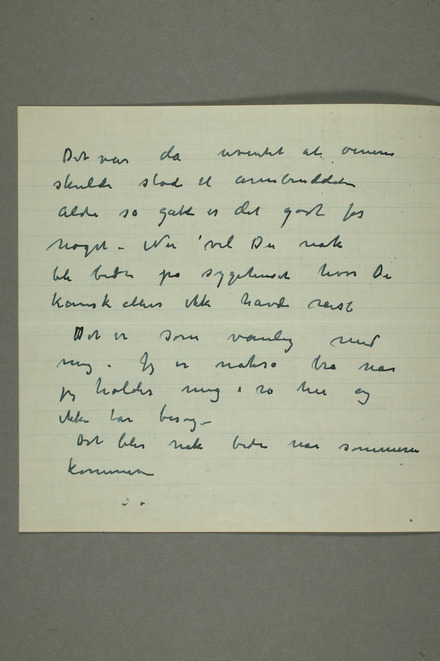 Det var da uventet at
skulde stod et
Aldri så galt er det godt for
noget - Nu vil De nok
bli bedre på sygehuset hvor De
kanske ellers ikke havde reist
Det er som vanlig med
mig. Jeg er nokså bra når
jeg holder mig i ro her og
ikke tar besøg -
Det blir nok bedre når sommeren
kommer